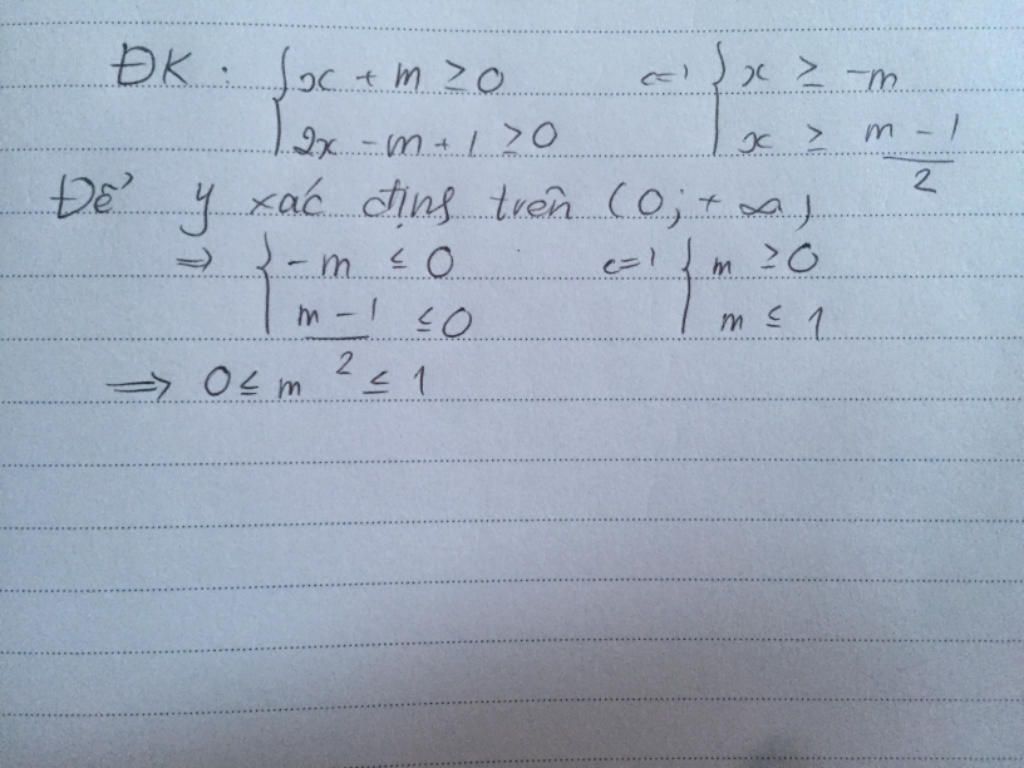 ĐK : { x + m ≥ 0 <=> { x ≥ -m
2x - m + 1 ≥ 0 x ≥ (m - 1)/2
Để y xác định trên (0; + ∞)
=> { -m ≤ 0 <=> { m ≥ 0
(m - 1)/2 ≤ 0 m ≤ 1
=> 0 ≤ m ≤ 1